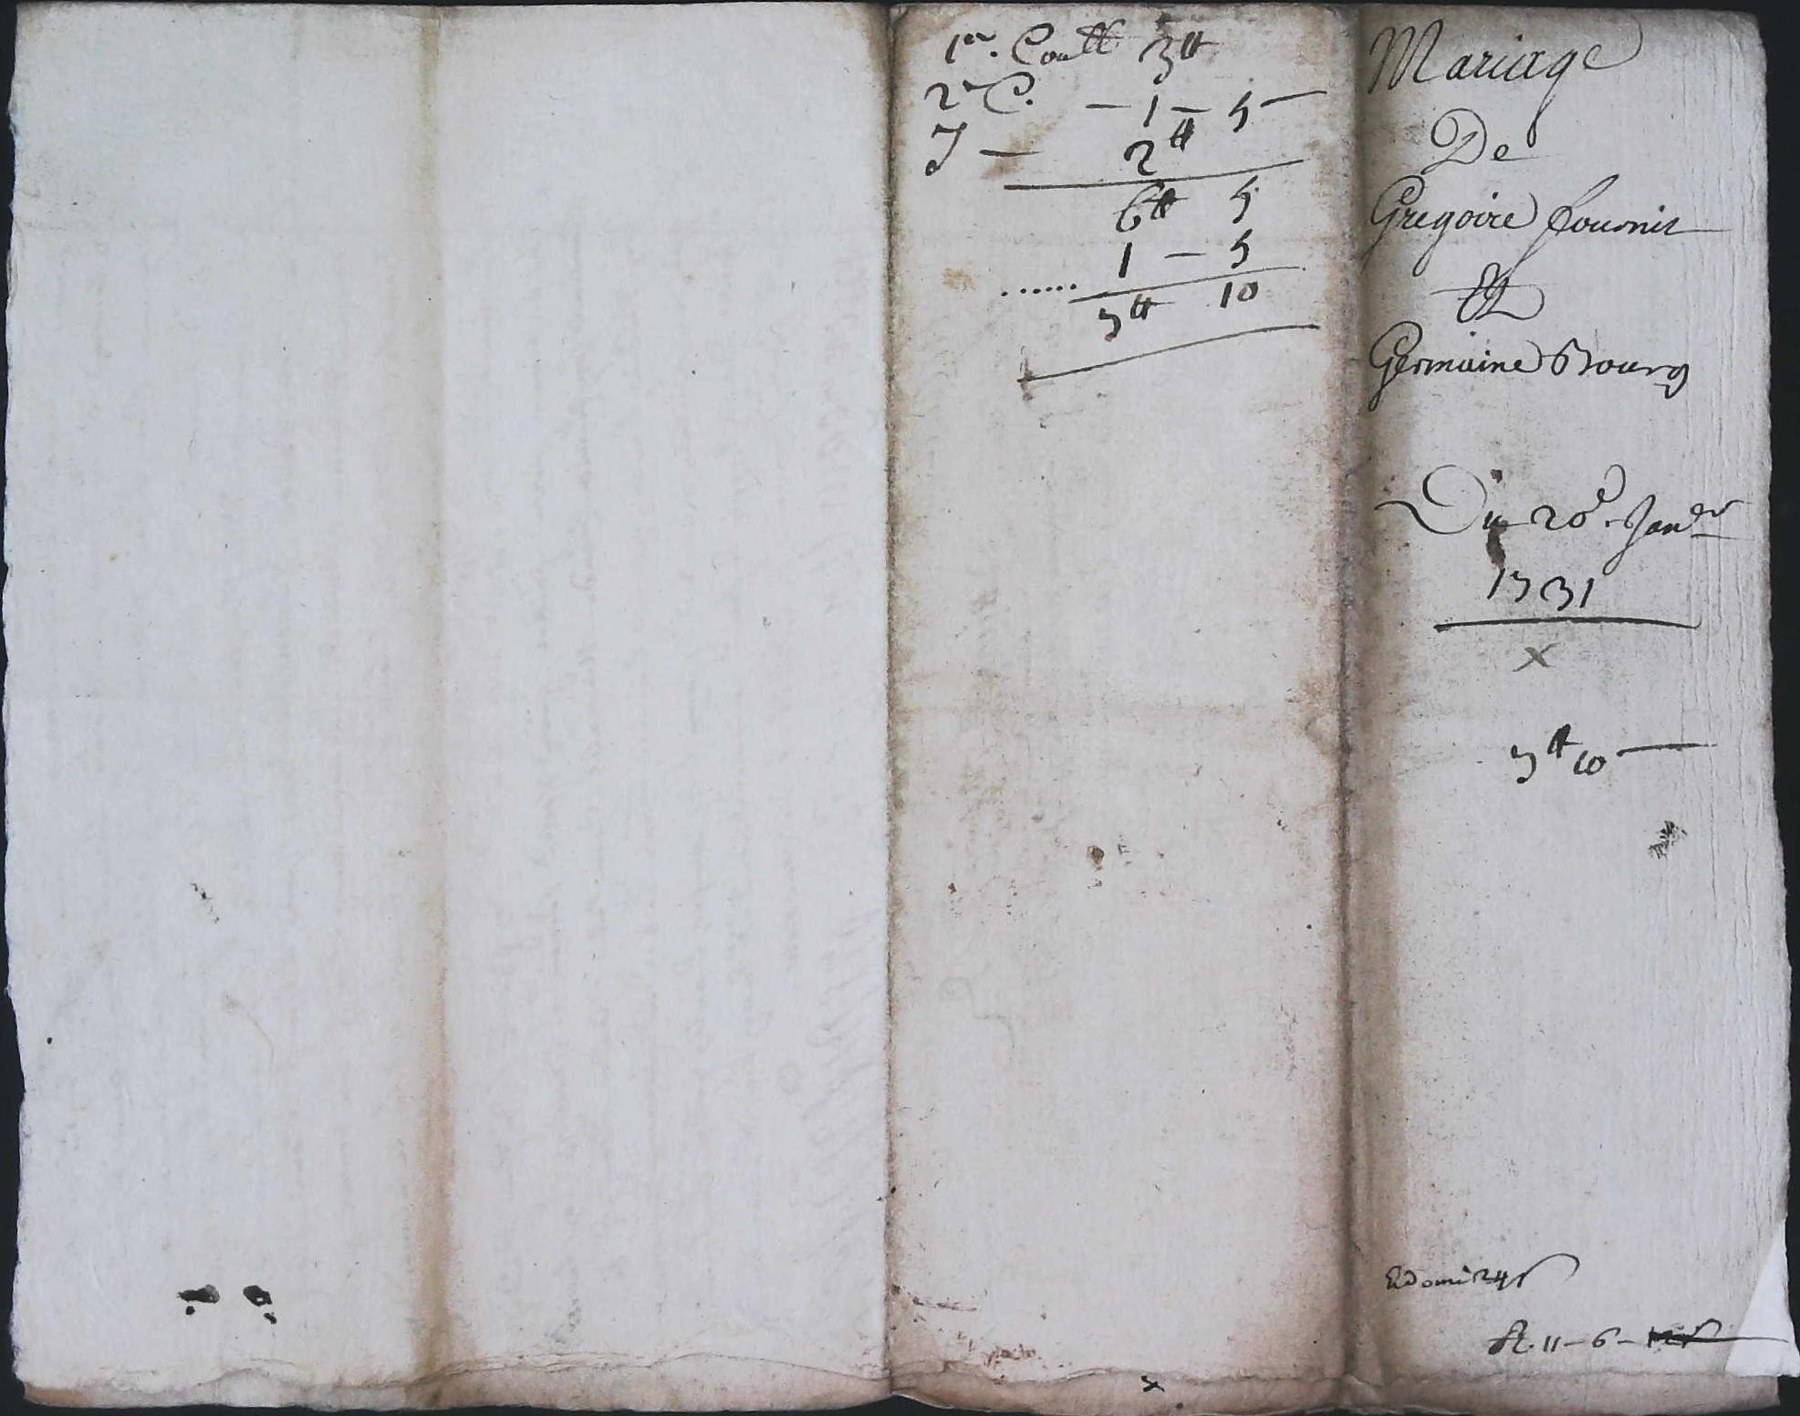 1er. Contt 3₶
2e C. — 1 — 5 —
J — 2₶
6₶ 5
1 — 5
...... 7₶ 10
Mariage
De
Gregoire fournier
Et
Germaine Bourg
Du 20e. Janer
1731
x
7₶ 10 —
R. 11 — 6 —
x